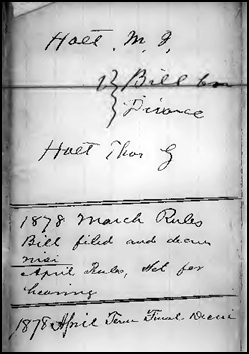 Holt, M. J.
Bill for
Divorce
Holt Thos G
1878 March Rules
Bill filed and decree
nisi
April Rules, Set for
hearing
1878 April Term Final Decree